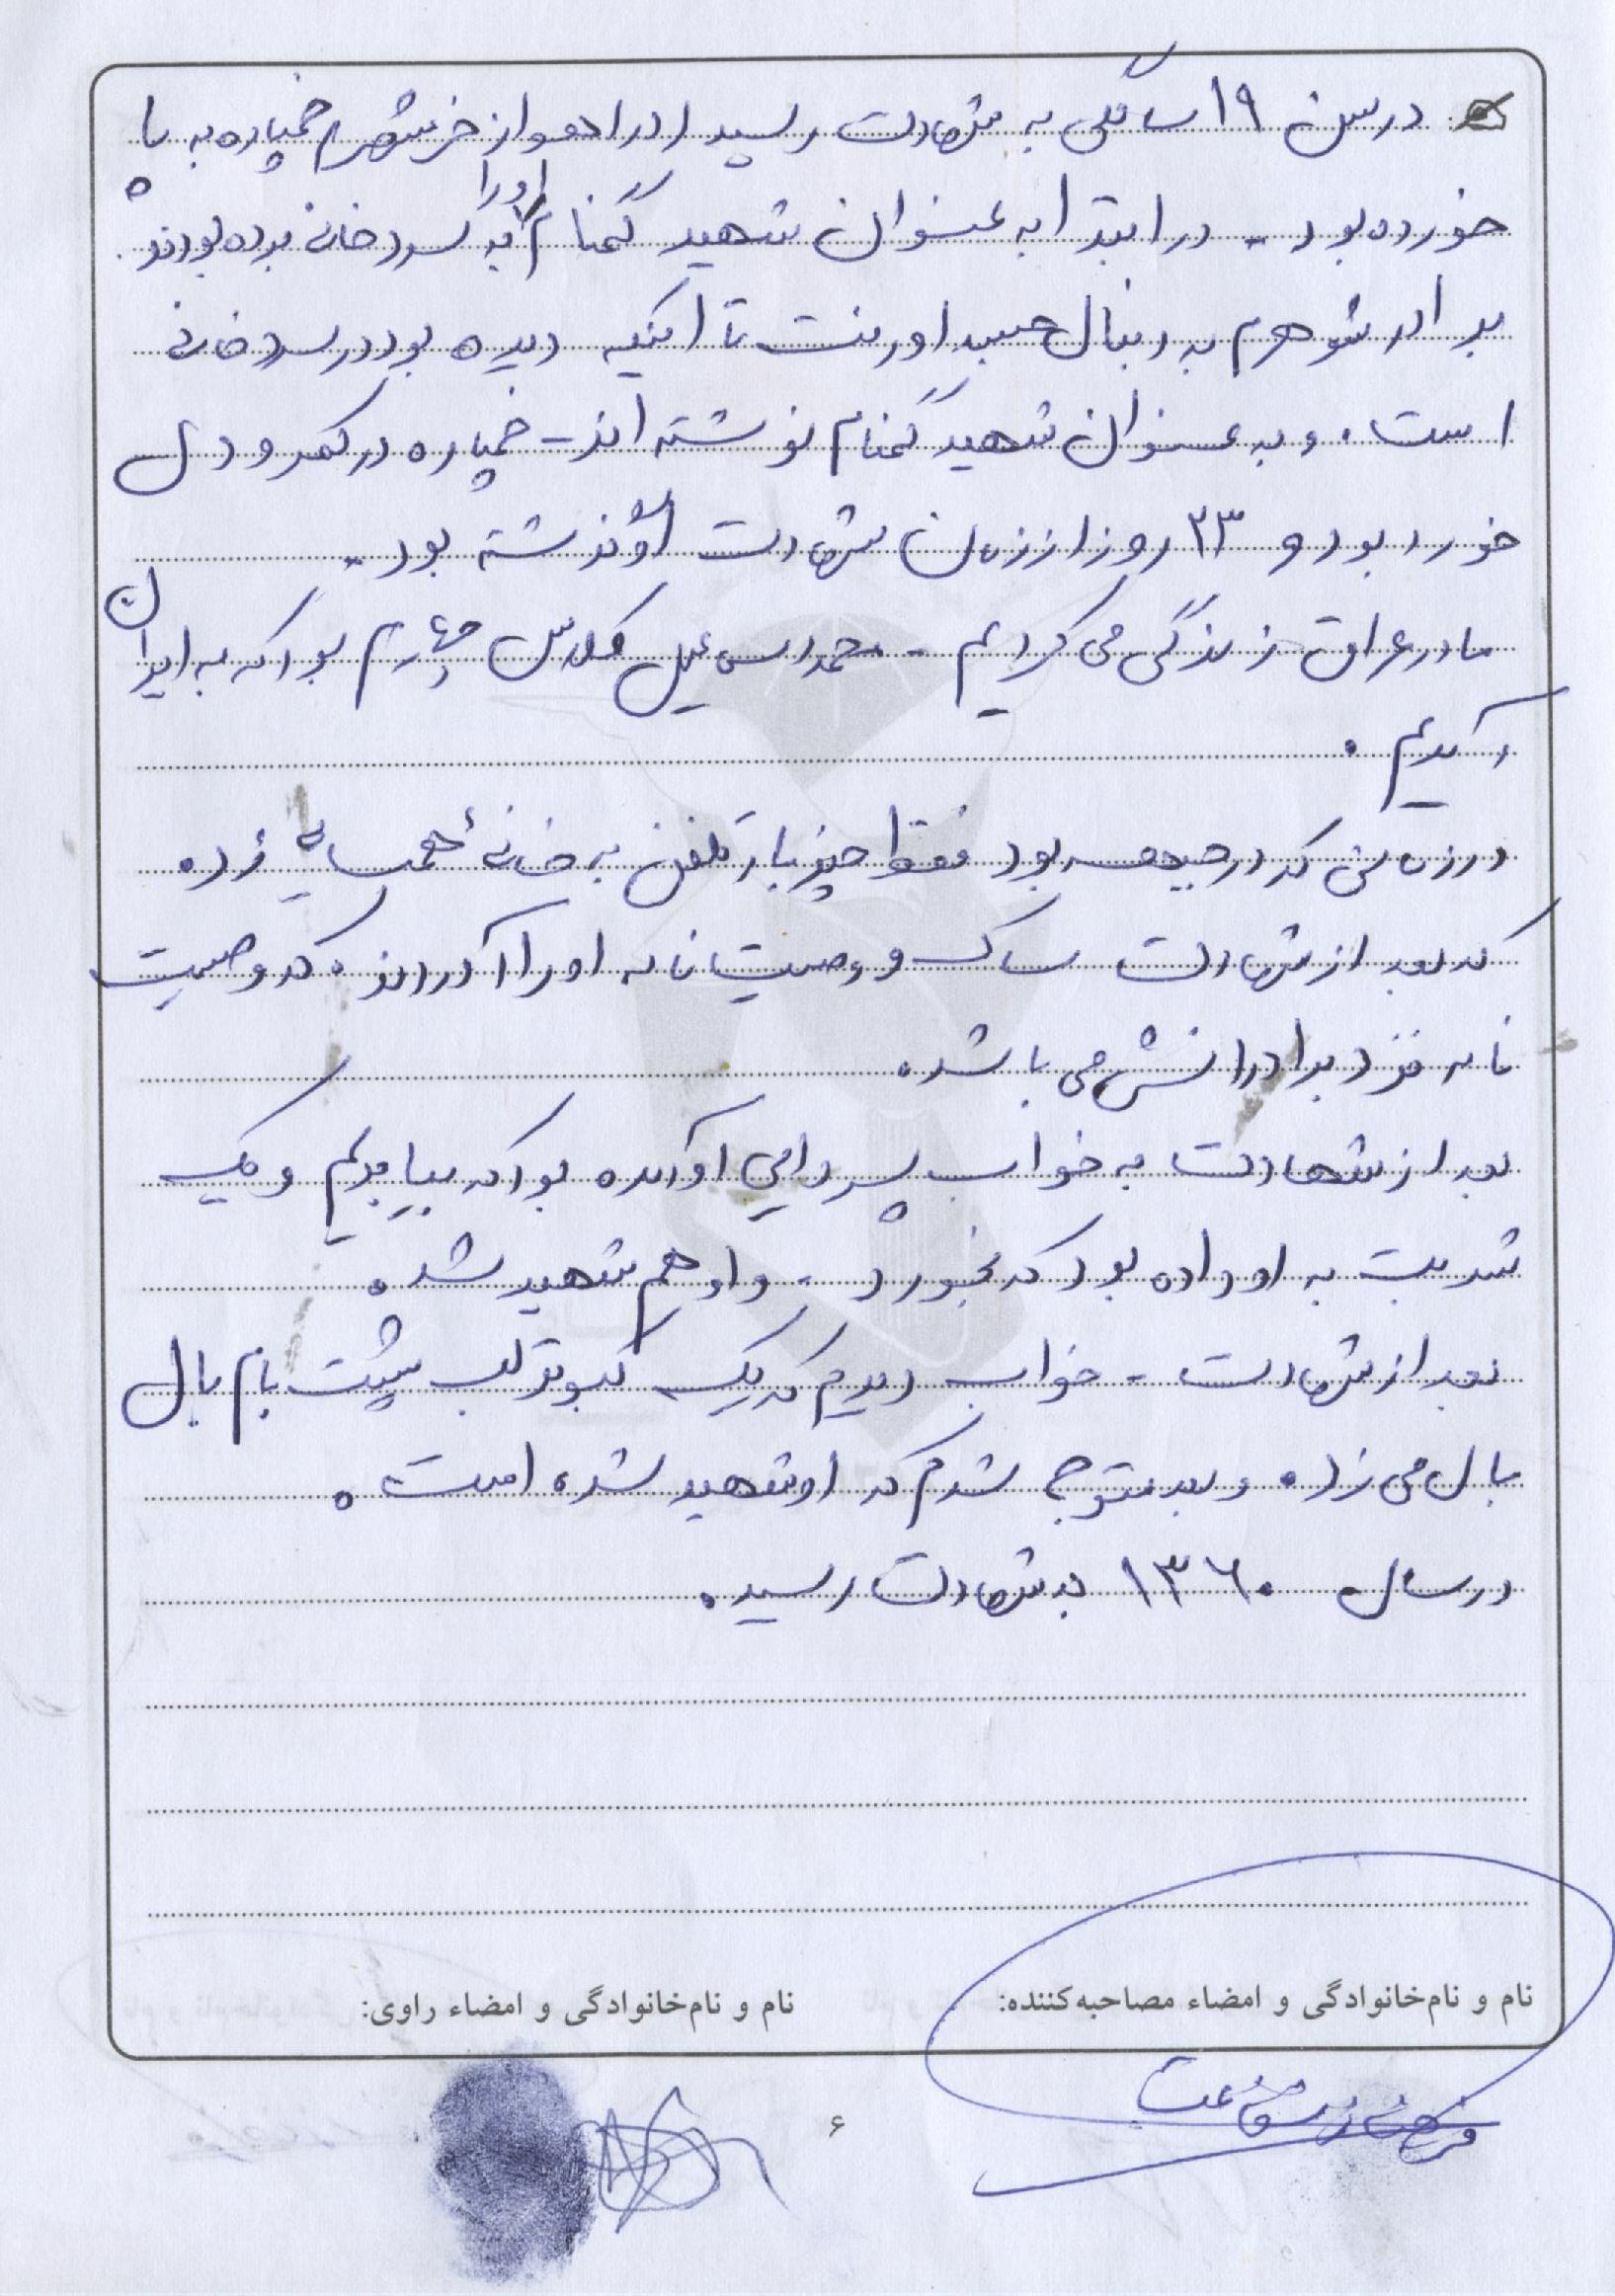 در سن ۱۹ سالگی به شهادت رسید او در اهواز خرمشهر خمپاره به پا
خورده بود - در ابتدا به عنوان شهید گمنام او را به سردخانه برده بودند.
برادر شوهرم به دنبال جسد او رفت تا اینکه دیده بود در سردخانه
است. و به عنوان شهید گمنام نوشته اند - خمپاره در کمر و دل
خورد بود و ۲۳ روز از زمان شهادت او گذشته بود -
ما در عراق زندگی می کردیم - محمد اسماعیل کلاس چهارم بود که به ایران
آمدیم.
در زمانی که در جبهه بود فقط چند بار تلفن به خانه همسایه زده
که بعد از شهادت ساک و وصیت نامه او را آوردند. که وصیت
نامه نزد برادرانش می باشد.
بعد از شهادت به خواب پسر دایی او آمده بود که بیا برویم و یک
شربت به او داده بود که بخورد - و او هم شهید شد.
بعد از شهادت - خواب دیدم که یک کبوتر لب پشت بام بال
بال می زند. و بعد متوجه شدم که او شهید شده است.
در سال ۱۳۶۰ به شهادت رسید.
نام و نام‌خانوادگی و امضاء مصاحبه‌کننده:
نام و نام‌خانوادگی و امضاء راوی:
۶